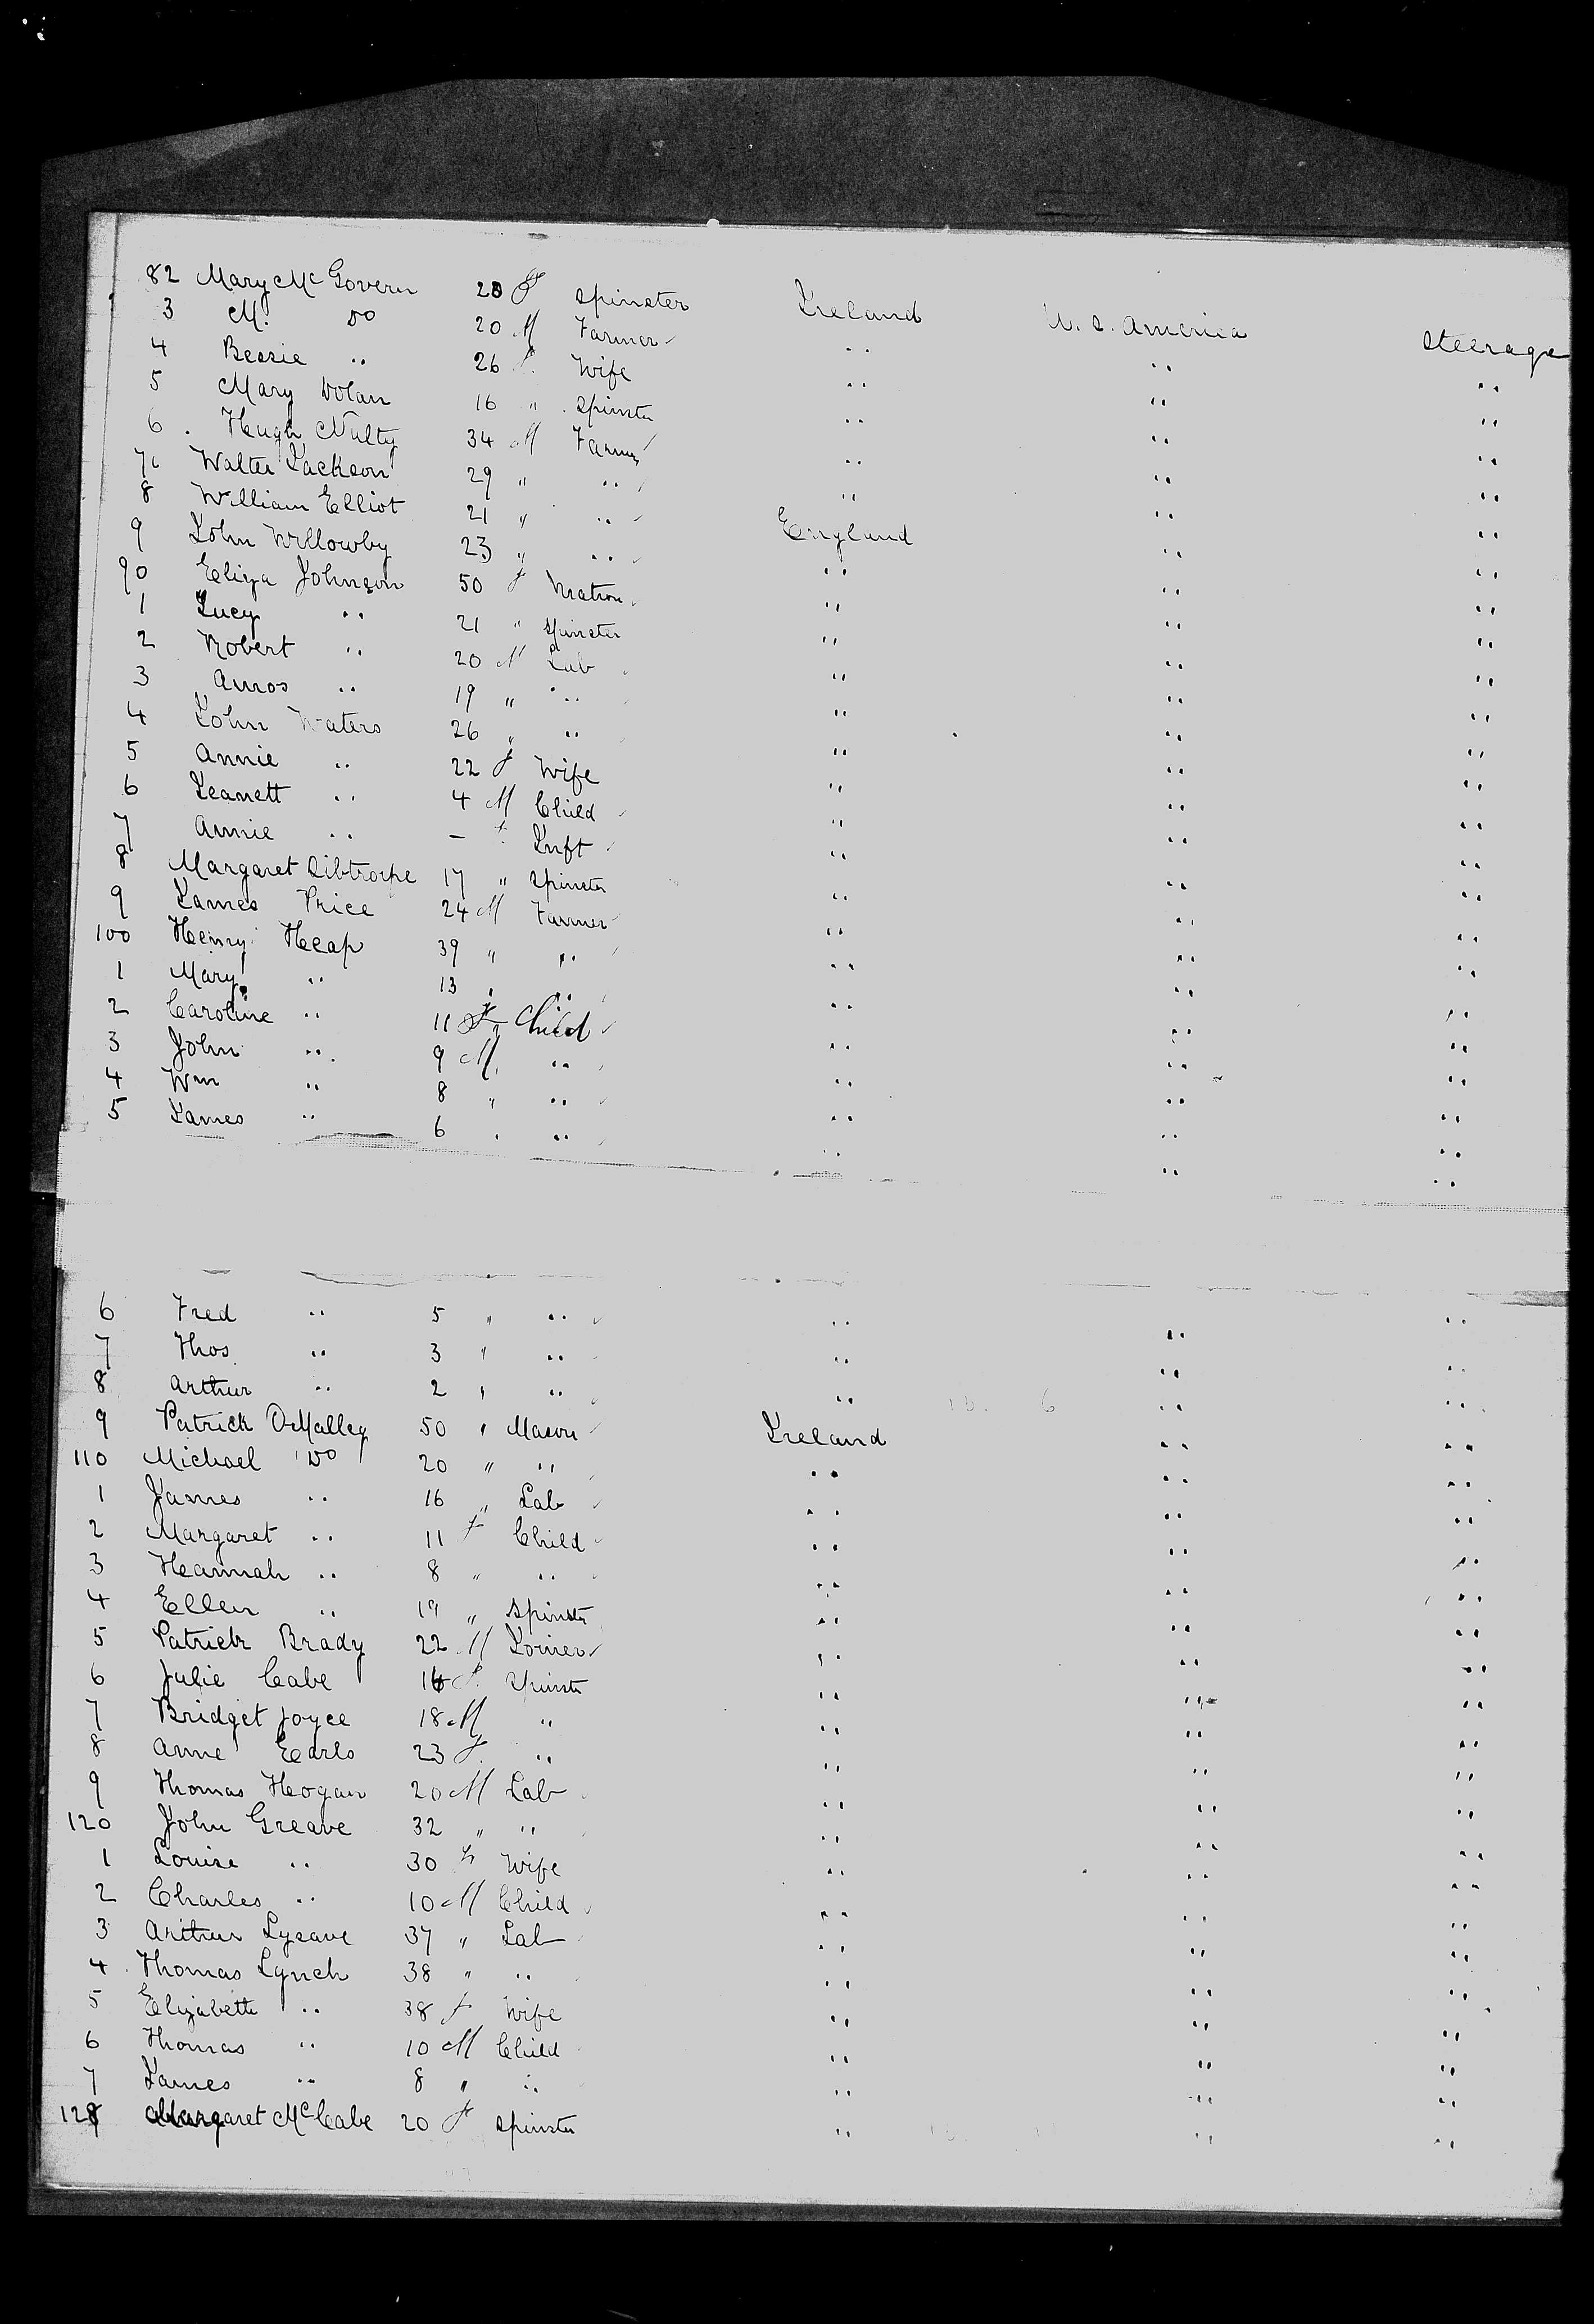 82 Mary Mc Govern 20 F Spinster Ireland U. S. America Steerage
3 M. Do 20 M Farmer " " "
4 Bessie " 26 F. Wife " " "
5 Mary Dolan 16 " Spinstr " " "
6 Hugh Nulty 34 M Farmer " " "
7 Walter Jackson 29 " " " " "
8 William Elliot 21 " " England " "
9 John Willowby 23 " " " " "
90 Eliza Johnson 50 F Matron " " "
1 Lucy " 21 " Spinster " " "
2 Robert " 20 M Lab " " "
3 Amos " 19 " " " " "
4 John Waters 26 " " " " "
5 Annie " 22 F Wife " " "
6 Jeanett " 4 M Child " " "
7 Annie " - F Inft " " "
8 Margaret Sibtrorpe 17 " Spinstr " " "
9 James Price 24 M Farmer " " "
100 Henry Heap 39 " " " " "
1 Mary " 13 " " " " "
2 Caroline " 11 F Child " " "
3 John " 9 M " " " "
4 Wm " 8 " " " " "
5 James " 6 " " " " "
6 Fred " 5 " " " " "
7 Thos " 3 " " " " "
8 Arthur " 2 " " " " "
9 Patrick O'Malley 50 " Mason Ireland " "
110 Michael Do 20 " " " " "
1 James " 16 " Lab " " "
2 Margaret " 11 F Child " " "
3 Hannah " 8 " " " " "
4 Ellen " 19 " Spinstr " " "
5 Patrick Brady 22 M Joiner " " "
6 Julie Cabe 16 F. Spinstr " " "
7 Bridget Joyce 18 M " " " "
8 Anne Earls 23 F. " " " "
9 Thomas Hogan 20 M Lab " " "
120 John Greave 32 " " " " "
1 Louise " 30 F Wife " " "
2 Charles " 10 M Child " " "
3 Arthur Lyeave 37 " Lab " " "
4 Thomas Lynch 38 " " " " "
5 Elizabeth " 38 F Wife " " "
6 Thomas " 10 M Child " " "
7 James " 8 " " " " "
128 Margaret McCabe 20 F Spinstr " " "